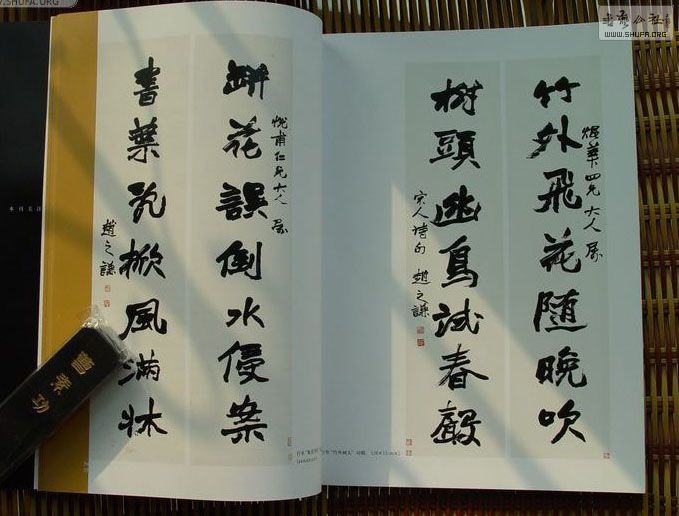 WWW.SHUFA.ORG
竹外飛花隨晚吹
四兄大人屬
樹頭幽鳥試春聲
宋人詩句 趙之謙
缾花誤倒水侵案
悅甫仁兄大人屬
書葉亂掀風滿牀
趙之謙
曹素功
.SHUFA.ORG